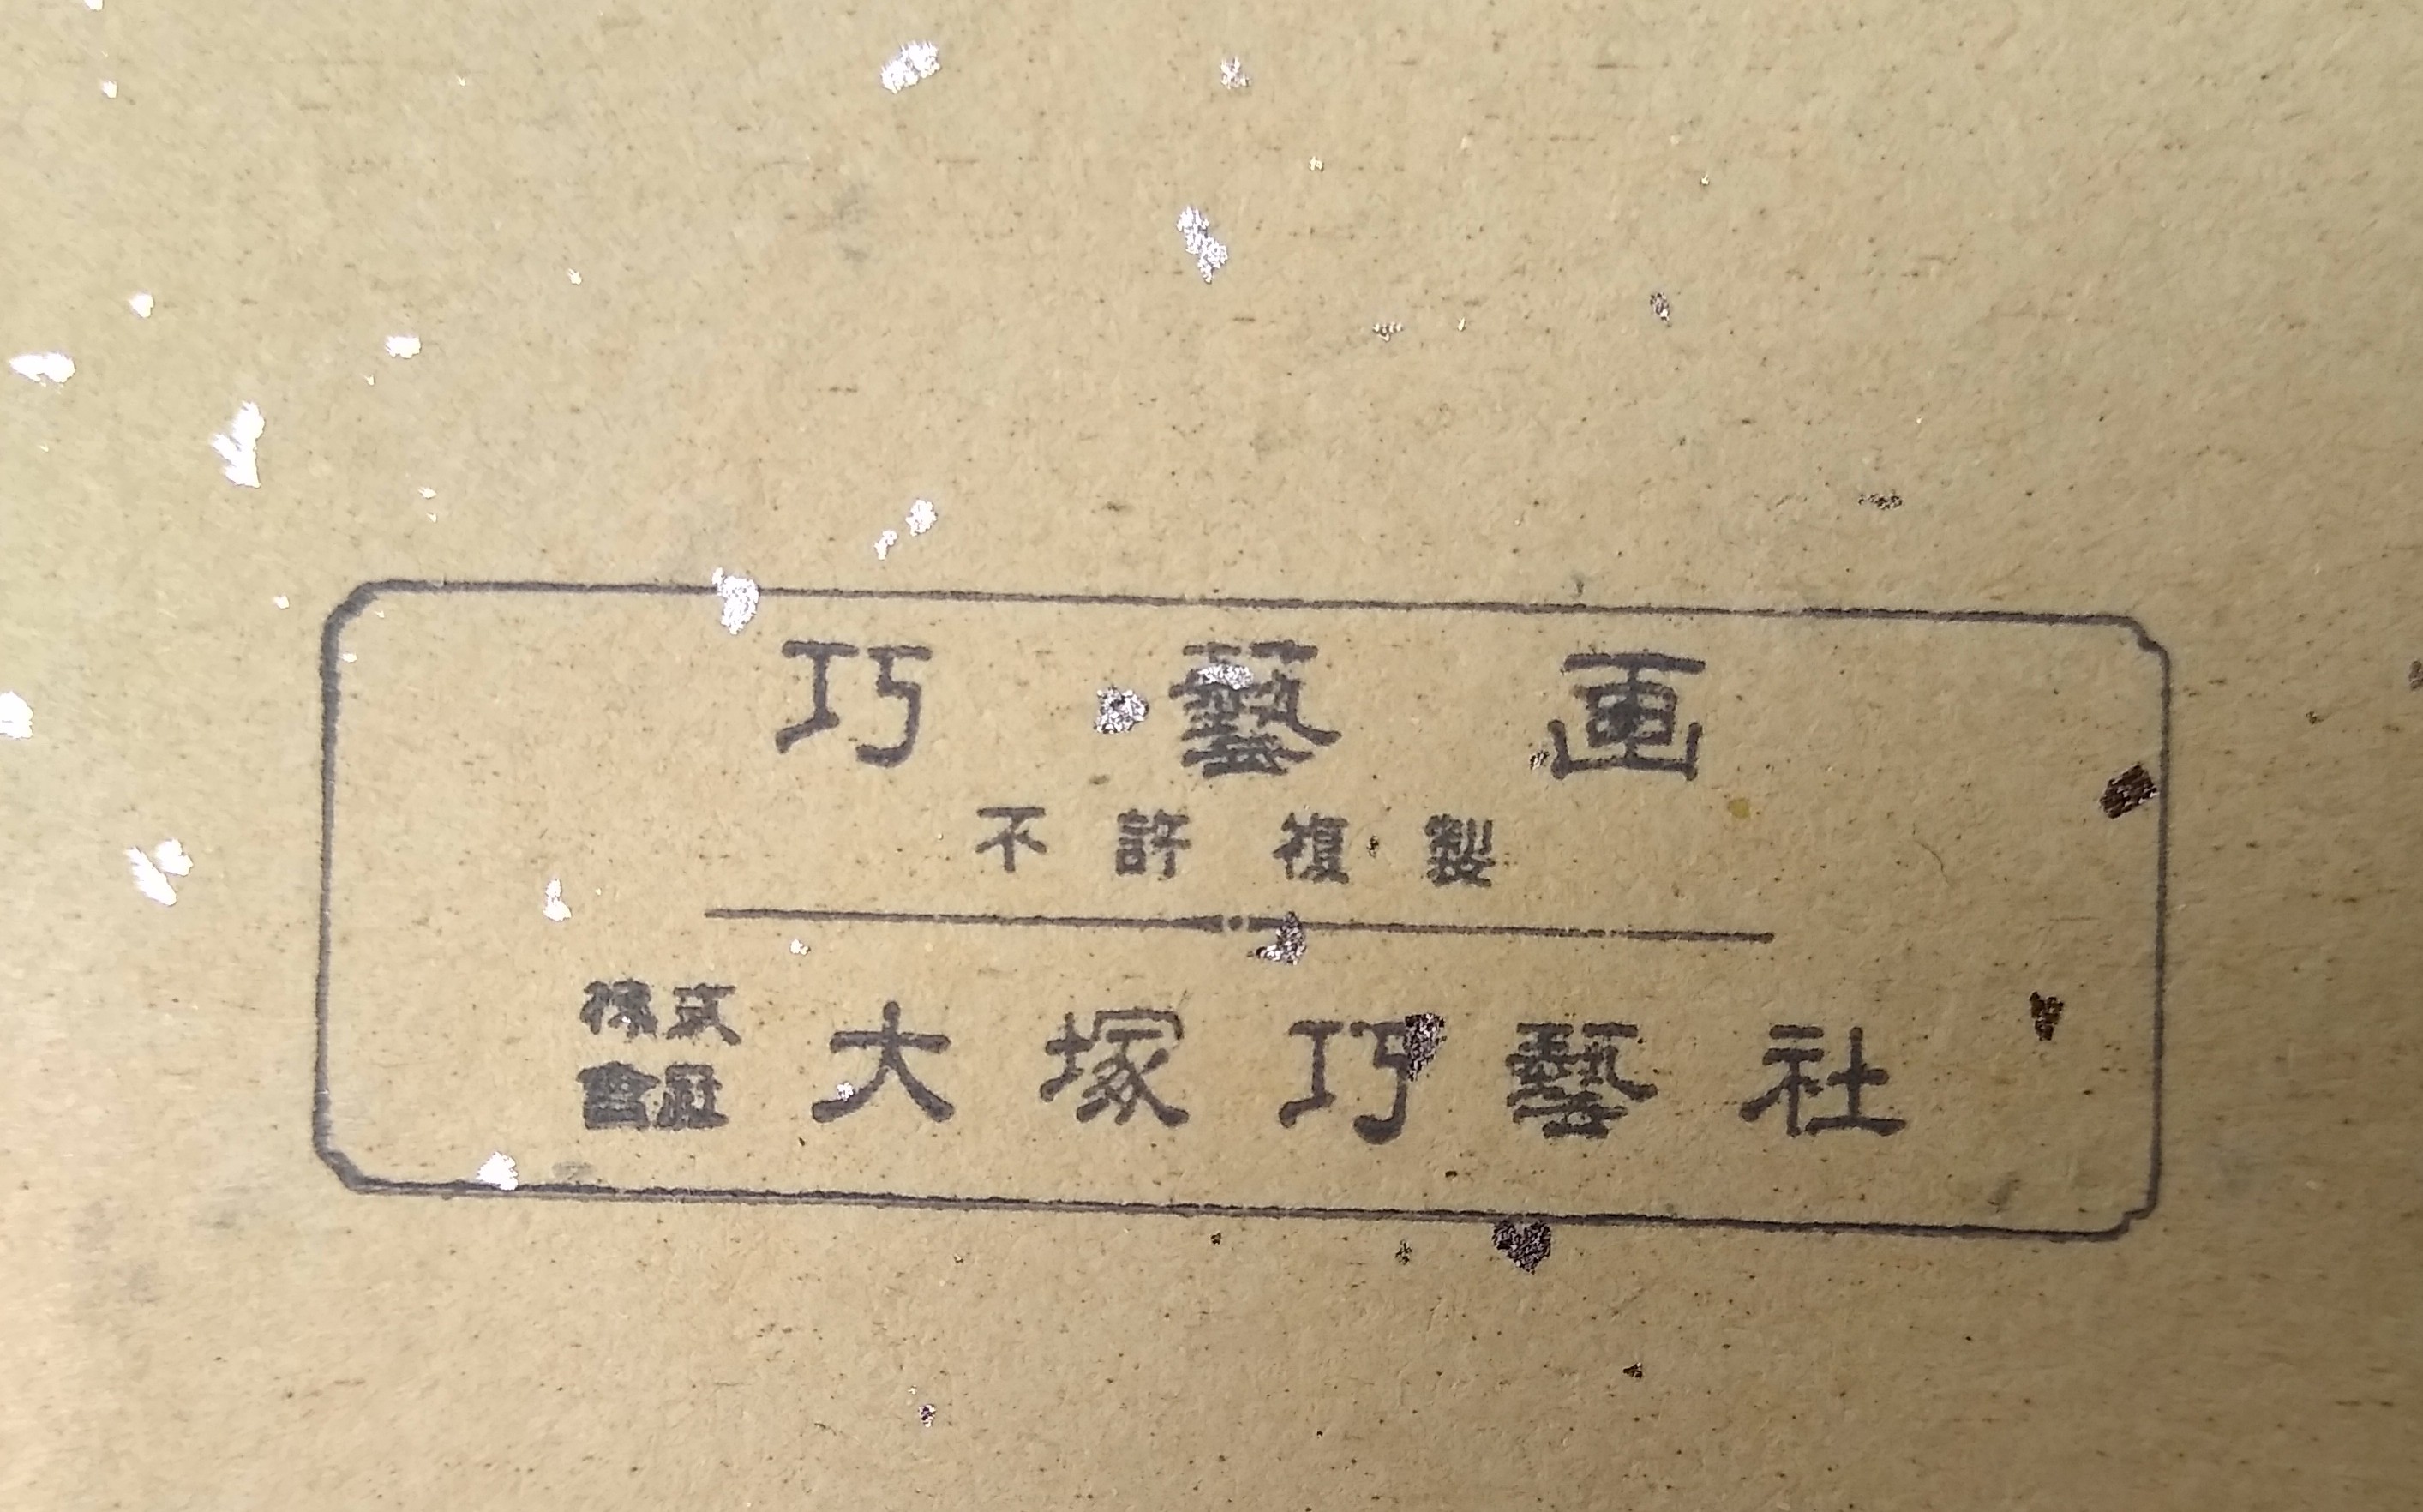 巧藝画
不許複製
株式會社 大塚巧藝社